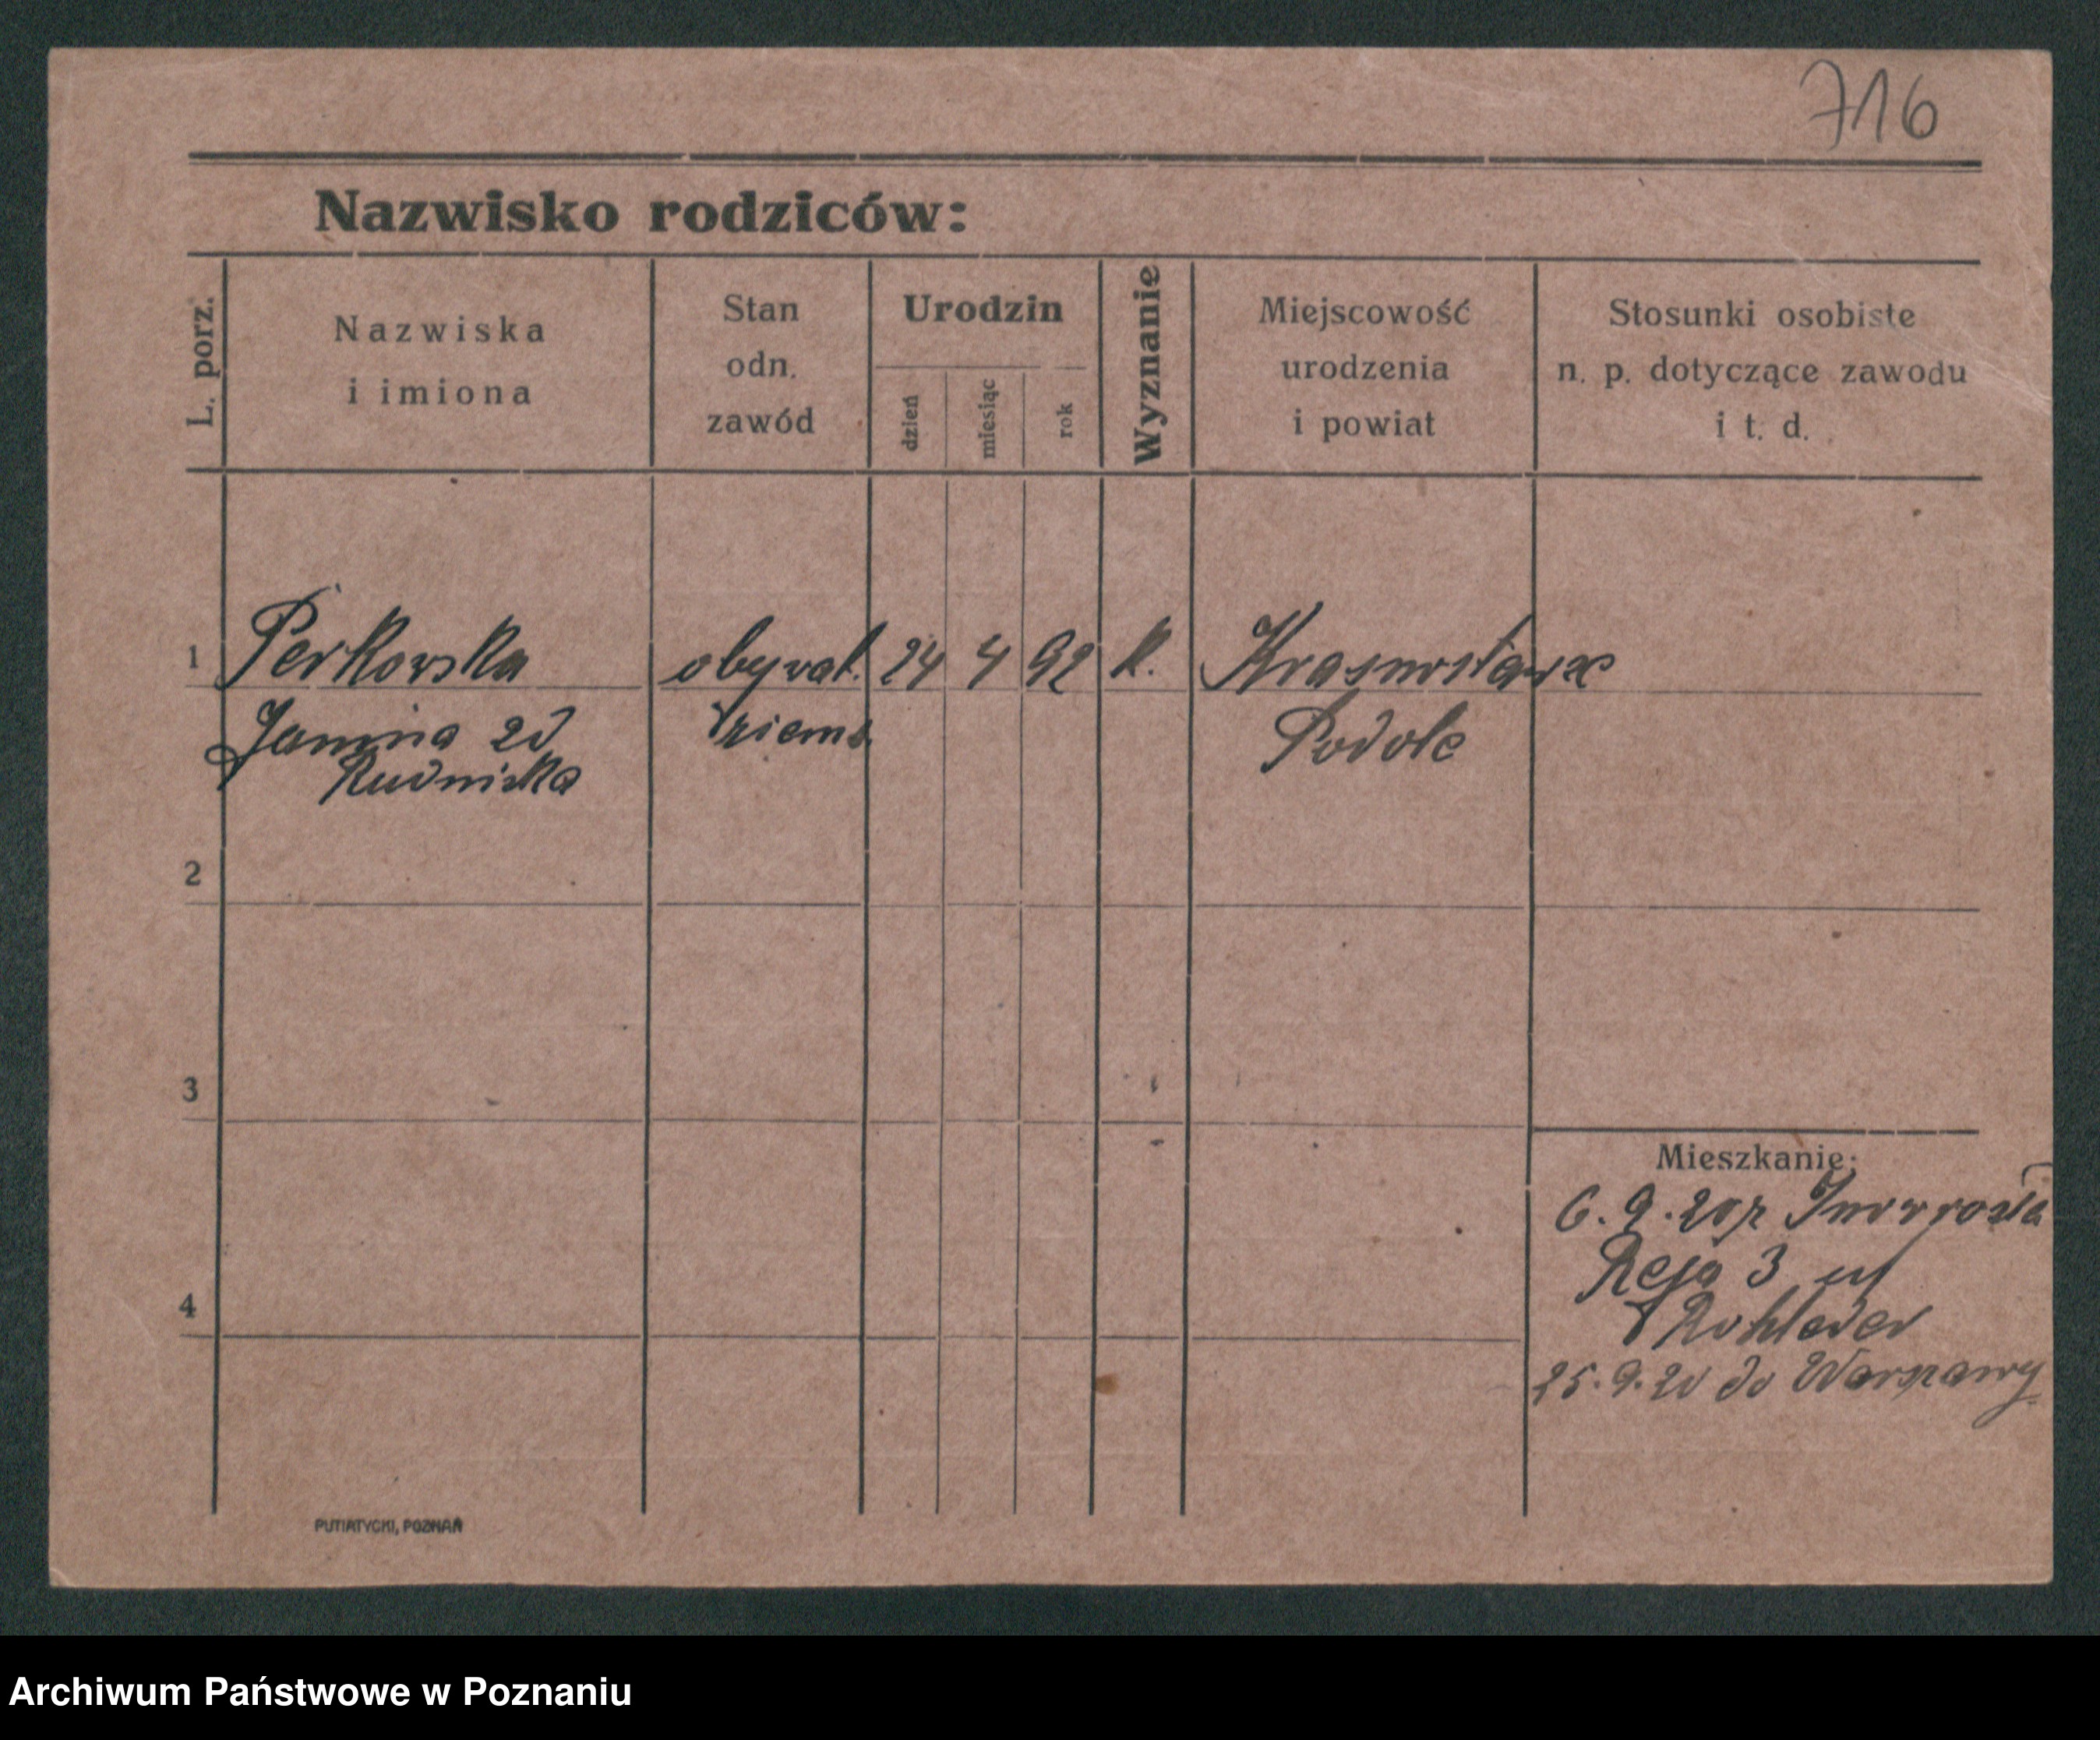 716
Nazwisko rodziców:
L. porz.
Nazwiska
i imiona
Stan
odn.
zawód
Urodzin
dzień
miesiąc
rok
Wyznanie
Miejscowość
urodzenia
i powiat
Stosunki osobiste
n. p. dotyczące zawodu
i t. d.
1 Perkowska obywat. 24 4 92 k.
Janina zd ziems.
Rudnicka Podole
2
3
4
Mieszkanie:
6.9.20 z
Reja 3
Rohleder
25.9.20 do Warszawy
PUTIATYCKI, POZNAŃ
Archiwum Państwowe w Poznaniu